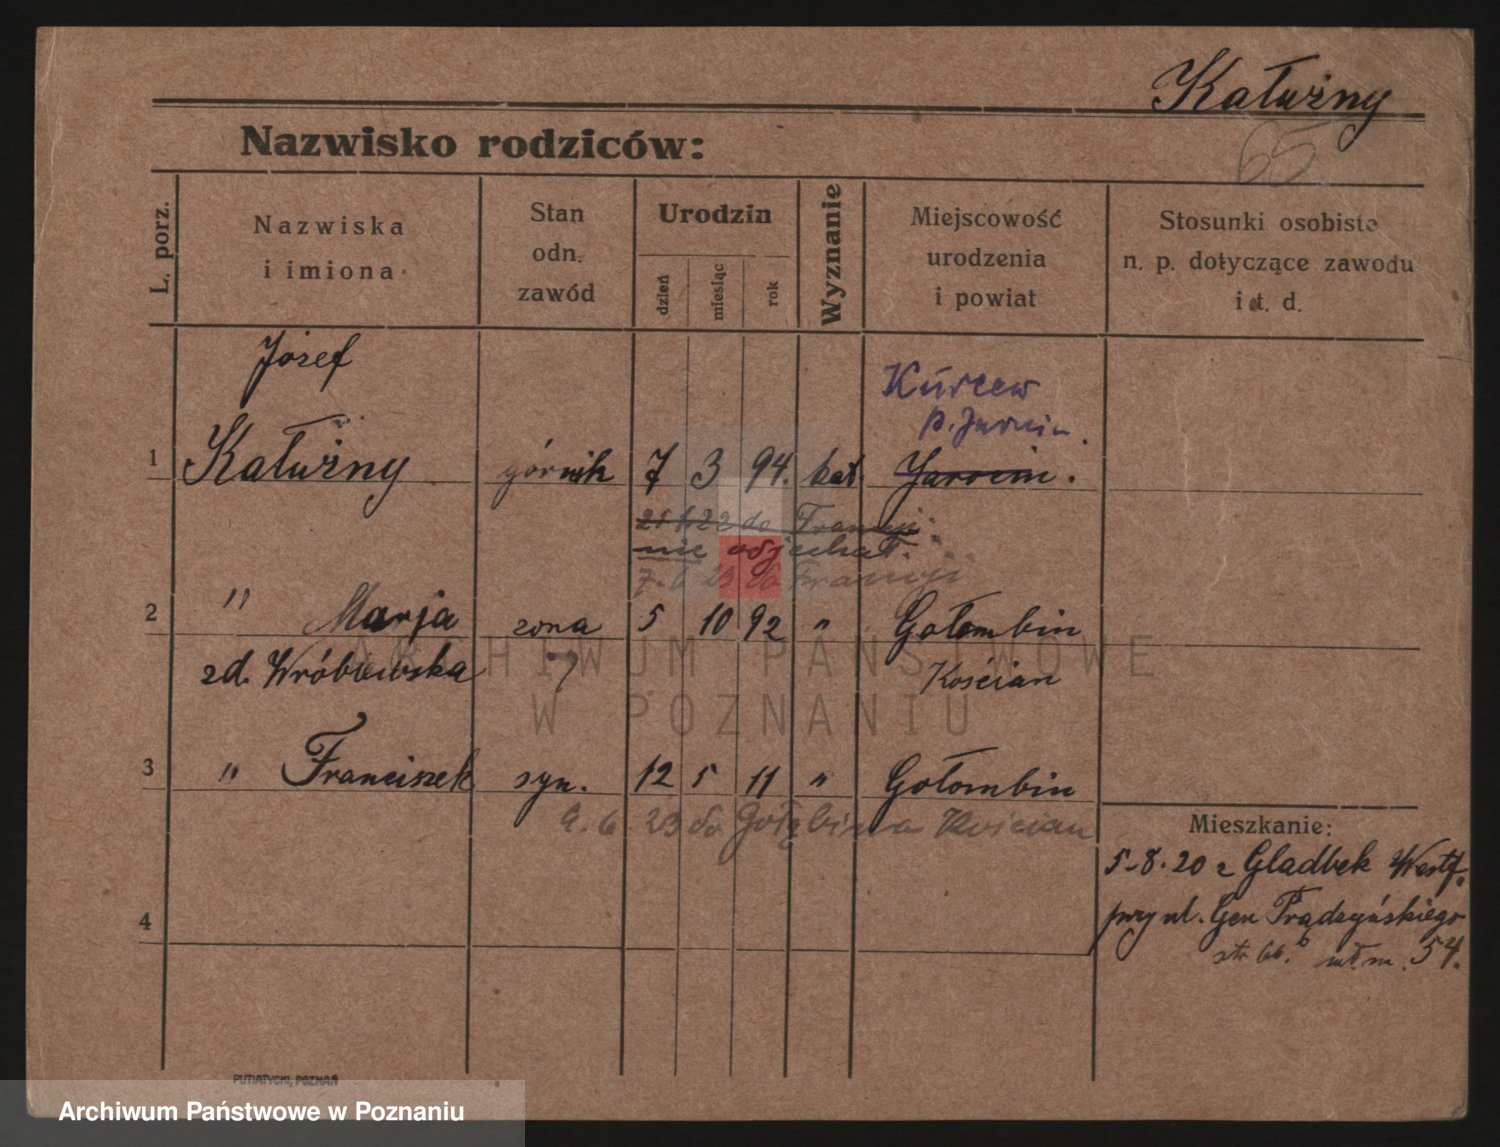 Kałużny
65
Nazwisko rodziców:
L. porz.
Nazwiska
i imiona
Stan
odn.
zawód
Urodzin
dzień
miesiąc
rok
Wyznanie
Miejscowość
urodzenia
i powiat
Stosunki osobiste
n. p. dotyczące zawodu
i t. d.
Józef
Kurcew
p. Jarocin.
1 Kałużny górnik 7 3 94. kat. Jarocin.
21 1.22 do Francji.
nie odjechał.
7. 6 23 do Francji
2 " Marja żona 5 10 92 " Gołombin
zd. Wróblewska Kościan
3 " Franciszek syn. 12 5 11 " Gołombin
9. 6. 23 do Gołębina Kościan
Mieszkanie:
5-8.20 z Gladbek Westf.
przy ul. Gen Prądzyńskiego
54.
4
PUTIATYCKI, POZNAŃ
ARCHIWUM PAŃSTWOWE
W POZNANIU
Archiwum Państwowe w Poznaniu